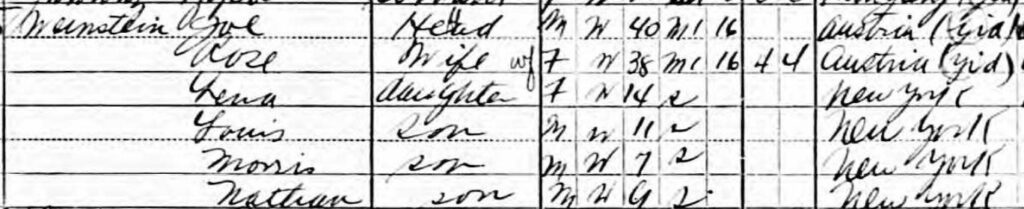 Weinstein Joe Head M W 40 M1 16 Austria (Yid)
Rose Wife wf F W 38 M1 16 4 4 Austria (Yid)
Lena daughter F W 14 S New York
Louis son M W 11 S New York
Morris son M W 7 S New York
Nathan son M W S New York